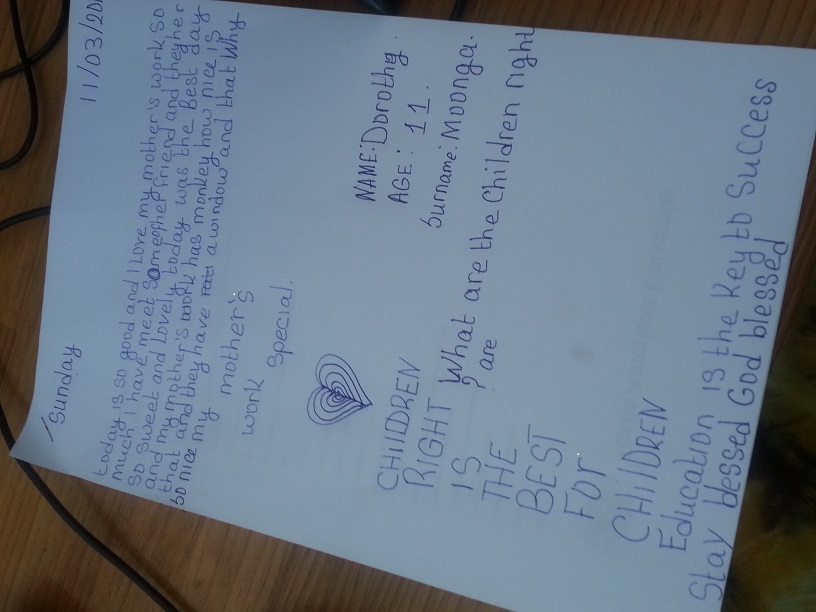 Sunday 11/03/20
today is so good and I Love my mother's work so
much I have meet someopher friend and theyher
so sweet and Lovely today was the Best day
and my mother's work has monkey how nice is
that and they have a window and that Why
so nice my mother's
work special.
NAME: Dorothy.
AGE: 11.
Surname: Moonga.
CHIlDREN
RIGHT What are the Children right
IS ? are
THE
BEST
FOr
CHIlDREN
Education is the Key to Success
Stay blessed God blessed